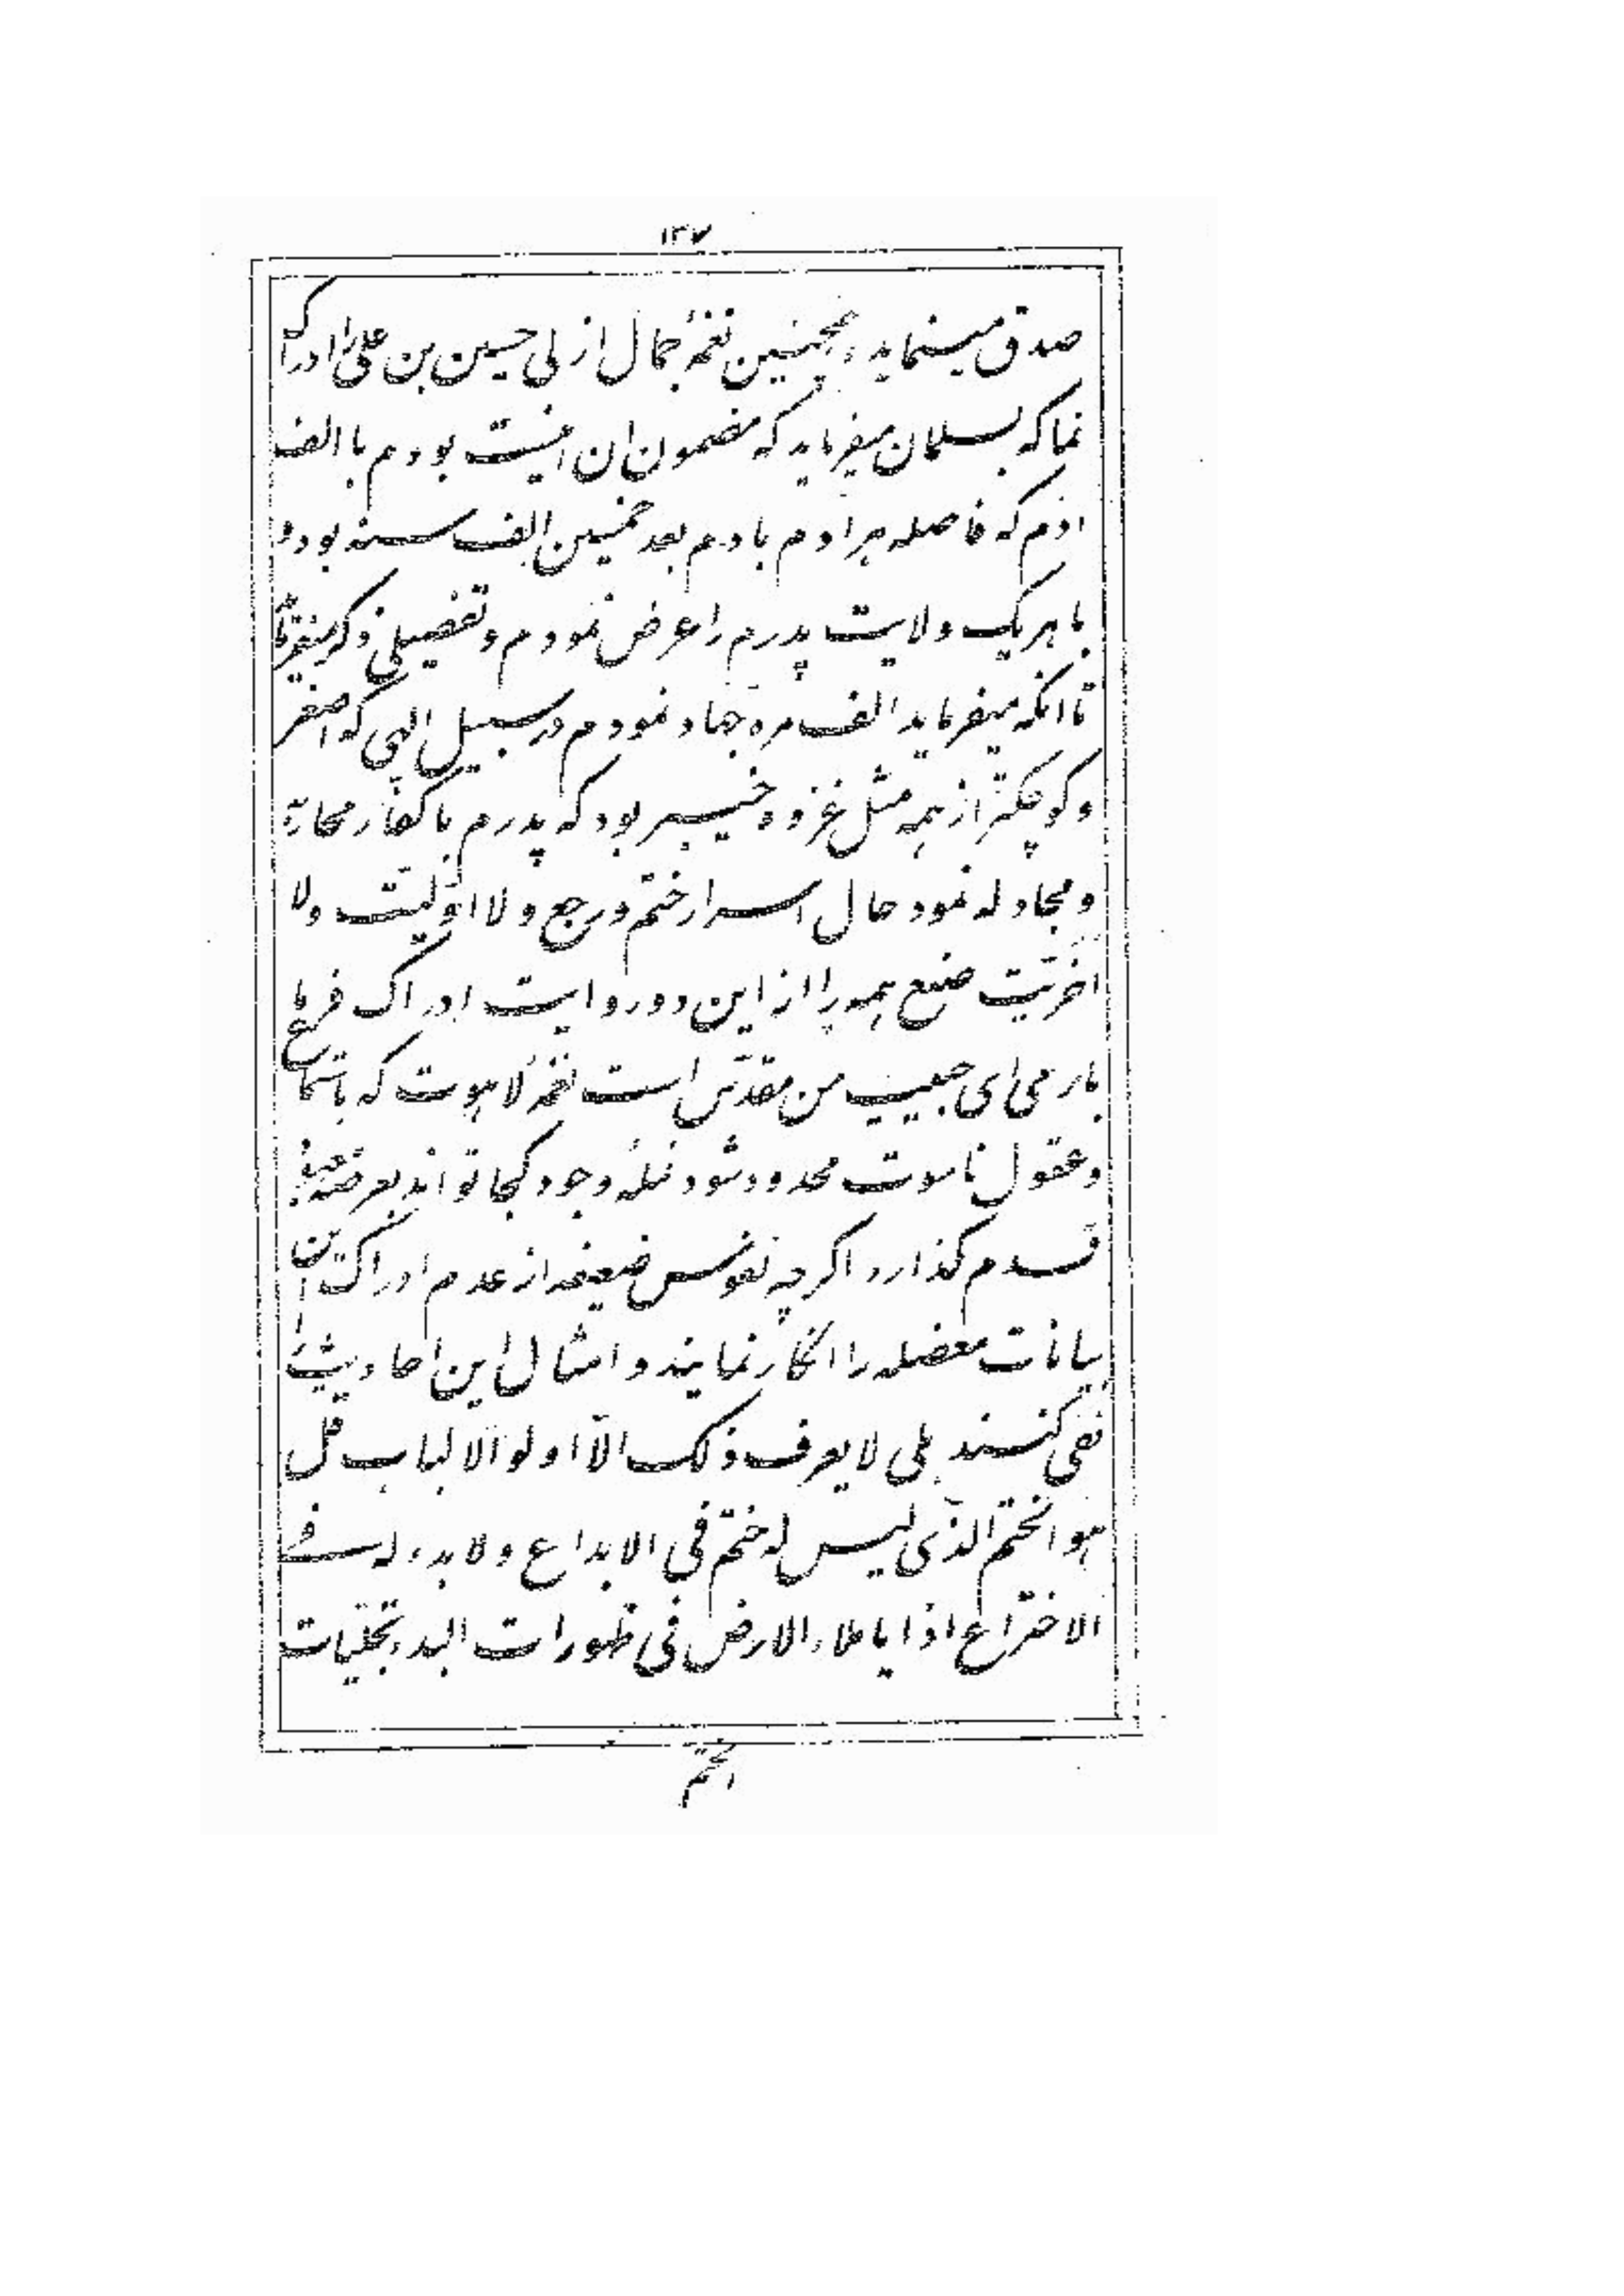 ١٣٧
صدق مینماید و همچنین نغمهٔ جمال ازلی حسین بن علی را ادراک
نما که بسلمان میفرماید که مضمون ان اینست بودم با الف
ادم که فاصله هر آدم بادم بعد خمسین الف سنه بود و
با هریک ولایت پدرم را عرض نمودم و تفصیلی ذکر میفرماید
تا انکه میفرماید الف مره جهاد نمودم در سبیل الهی که اصغر
و کوچکتر از همه مثل غزوه خیبر بود که پدرم با کفار محاربه
و مجادله نمود حال اسرار ختم و رجع و لا اوّلیّت ولا
اخریّت صنع همه را از این دو روایت ادراک فرما
باری ای حبیب من مقدّس است نغمهٔ لاهوت که باستماع
و عقول ناسوت محدود شود نملهٔ وجود کجا تواند بعرصه معبود
قدم گذارد اگر چه نفوس ضعیفه از عدم ادراک این
بیانات معضله را انکار نمایند و امثال این احادیث را
نفی کنند بلی لا یعرف ذلک الّا اولو الالباب قل
هو الختم الّذی لیس له ختم فی الابداع ولا بدء له فی
الاختراع اذا یا ملاء الارض فی ظهورات البدء تجلیّات
الختم